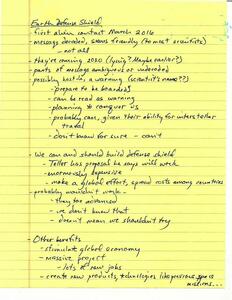 Earth Defense Shield
- first alien contact March 2016
- message decoded, seems friendly (to most scientists)
- not all
- they're coming 2020 (lying? Maybe earlier?)
- parts of message ambiguous or undecoded
- possibly hostile, a warning (scientist's name??)
- prepare to be boarded
- can be read as warning
- planning to conquer us
- probably can, given their ability for interstellar
travel
- don't know for sure - can't
- We can and should build defense shield
- Teller has proposal he says will work
- enormously expensive
- make a global effort, spread costs among countries
- probably wouldn't work -
- they too advanced
- we don't know that
- doesn't mean we shouldn't try
- Other benefits
- stimulate global economy
- massive project
- lots of new jobs
- create new products, technologies like previous space
missions...